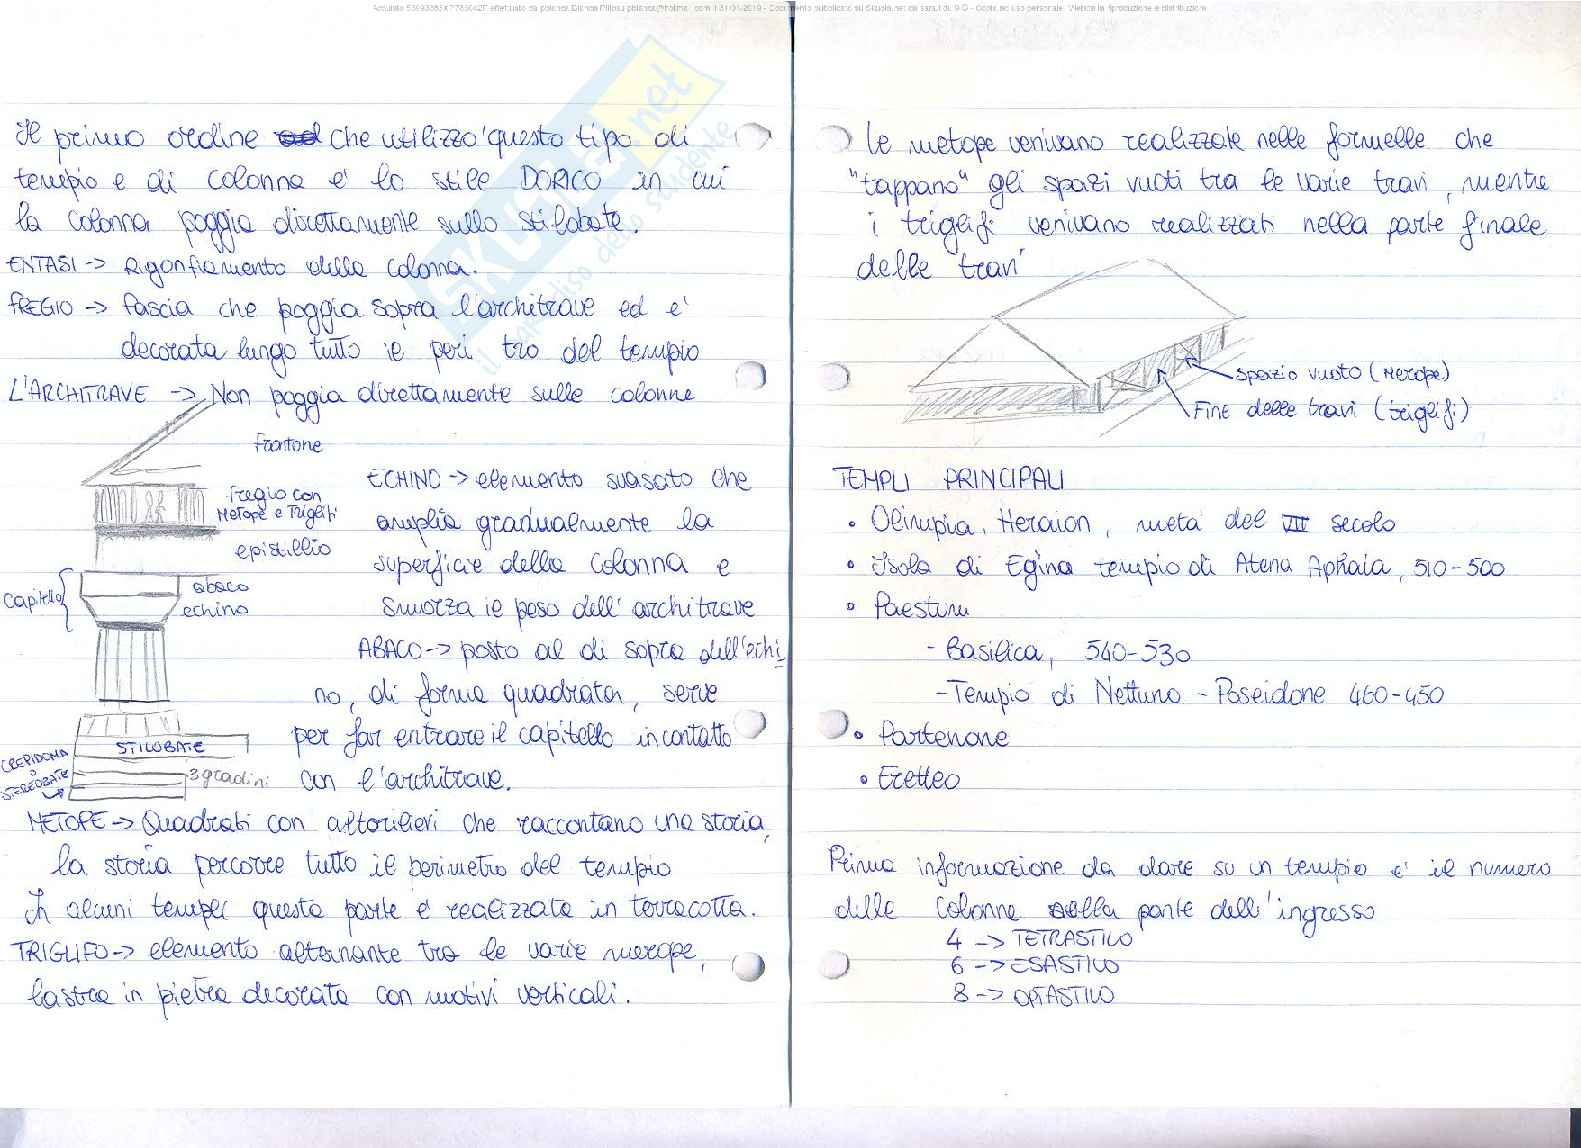 Il primo ordine che utilizzo' questo tipo di
tempio e di colonna e' lo stile DORICO in cui
la colonna poggia direttamente sullo stilobate.
ENTASI -> Rigonfiamento della colonna.
FREGIO -> Fascia che poggia sopra l'architrave ed e'
decorata lungo tutto il peri tro del tempio
L'ARCHITRAVE -> Non poggia direttamente sulle colonne
frontone
fregio con
Metope e Triglifi
epistillio
capitello
abaco
echino
ECHINO -> elemento svasato che
amplia gradualmente la
superficie della colonna e
smorza il peso dell'architrave
ABACO -> posto al di sopra dell'echi
no, di forma quadrata, serve
per far entrare il capitello in contatto
con l'architrave.
STILOBATE
CREPIDOMA
o
STEREOBATE
3 gradini
METOPE -> Quadrati con altorilievi che raccontano una storia,
la storia percorre tutto il perimetro del tempio
In alcuni templi questa parte e' realizzata in terracotta.
TRIGLIFO -> elemento alternante tra le varie metope,
lastra in pietra decorata con motivi verticali.
le metope venivano realizzate nelle formelle che
"tappano" gli spazi vuoti tra le varie travi, mentre
i triglifi venivano realizzati nella parte finale
delle travi
Spazio vuoto (Metope)
Fine delle travi (triglifi)
TEMPLI PRINCIPALI
• Olimpia, Heraion, meta del VII secolo
• Isola di Egina tempio di Atena Aphaia, 510-500
• Paestum
- Basilica, 540-530
- Tempio di Nettuno - Poseidone 460-450
• Partenone
• Eretteo
Prima informazione da dare su un tempio e' il numero
delle colonne nella parte dell'ingresso
4 -> TETRASTILO
6 -> ESASTILO
8 -> OPTASTILO
SKUOLA.net
il paradiso dello studente